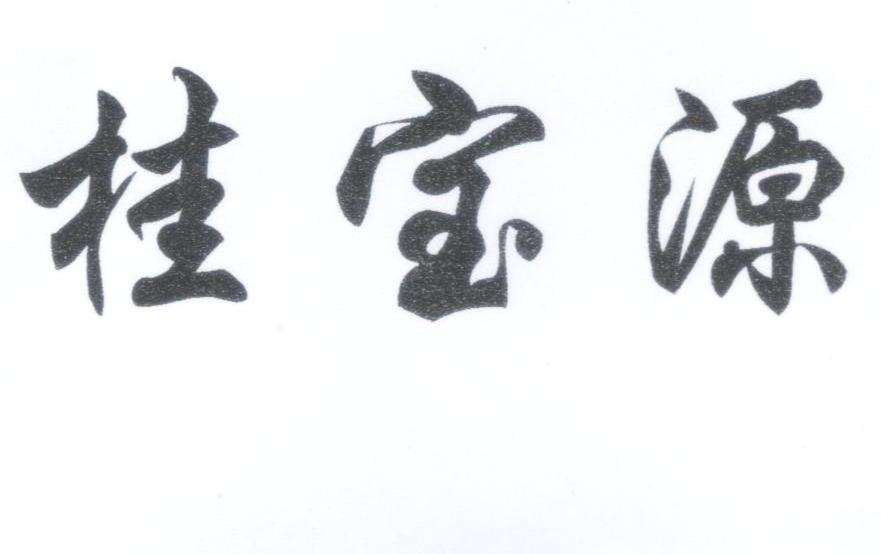 桂宝源